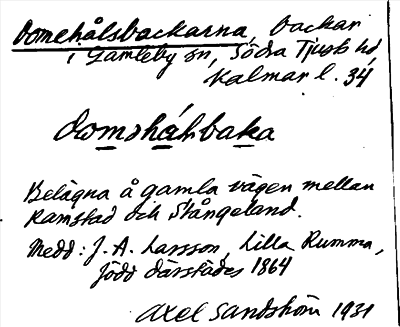 Domehålsbackarna, backar
i Gamleby sn, Södra Tjusts hd
Kalmar l. 34
domshálbaka
Belägna å gamla vägen mellan
Ramstad och Stångeland.
Medd: J. A. Larsson, Lilla Rumma,
född därstädes 1864
Axel Sandström 1931